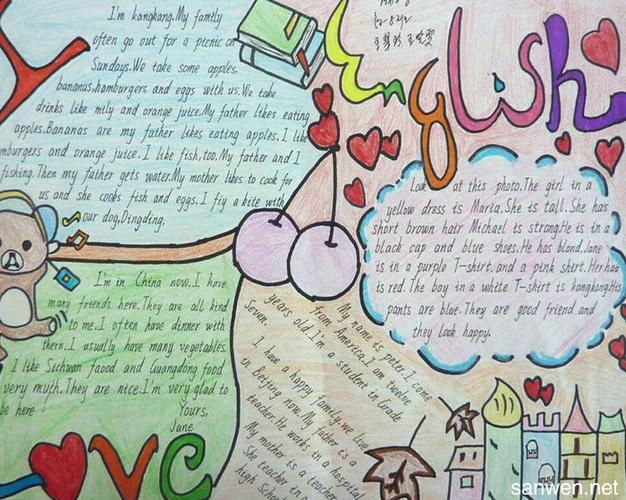 I'm kangkang.My family
often go out for a picnic on
Sundays.We take some apples,
bananas,hamburgers and eggs with us.We take
drinks like mily and orange juice.My father likes eating
apples.Bananas are my father likes eating apples.I like
mburgers and orange juice.I like fish,too.My father and I
fishing.Then my father gets water.My mother likes to cook for
us and she cooks fish and eggs.I fiy a kite with
our dog,Dingding.
English
Look at this photo.The girl in a
yellow dress is Maria.She is tall.She has
short brown hair Michael is strong.He is in a
black cap and blue shoes.He has blond.Jane
is in a purple T-shirt.and a pink shirt.Her hair
is red.The boy in a white T-shirt is kangkang.His
pants are blue.They are good friend and
they look happy.
I'm in China now.I have
many friends here.They are all kind
to me.I often have dinner with
them.I usually have many vegetables.
I like Sichuan faood and Guangdong food
very myth.They are nice.I'm very glad to
be here
Yours,
Jane
My name is peter.I come
from America.I am twelve
years old.I'm a student in Grade
Seven.
I have a happy family.we live
in Beijing now.My father is a
teacher.He works in a hospital
My mother is a teacher
She teacher in
high School
OVE
sanwen.net